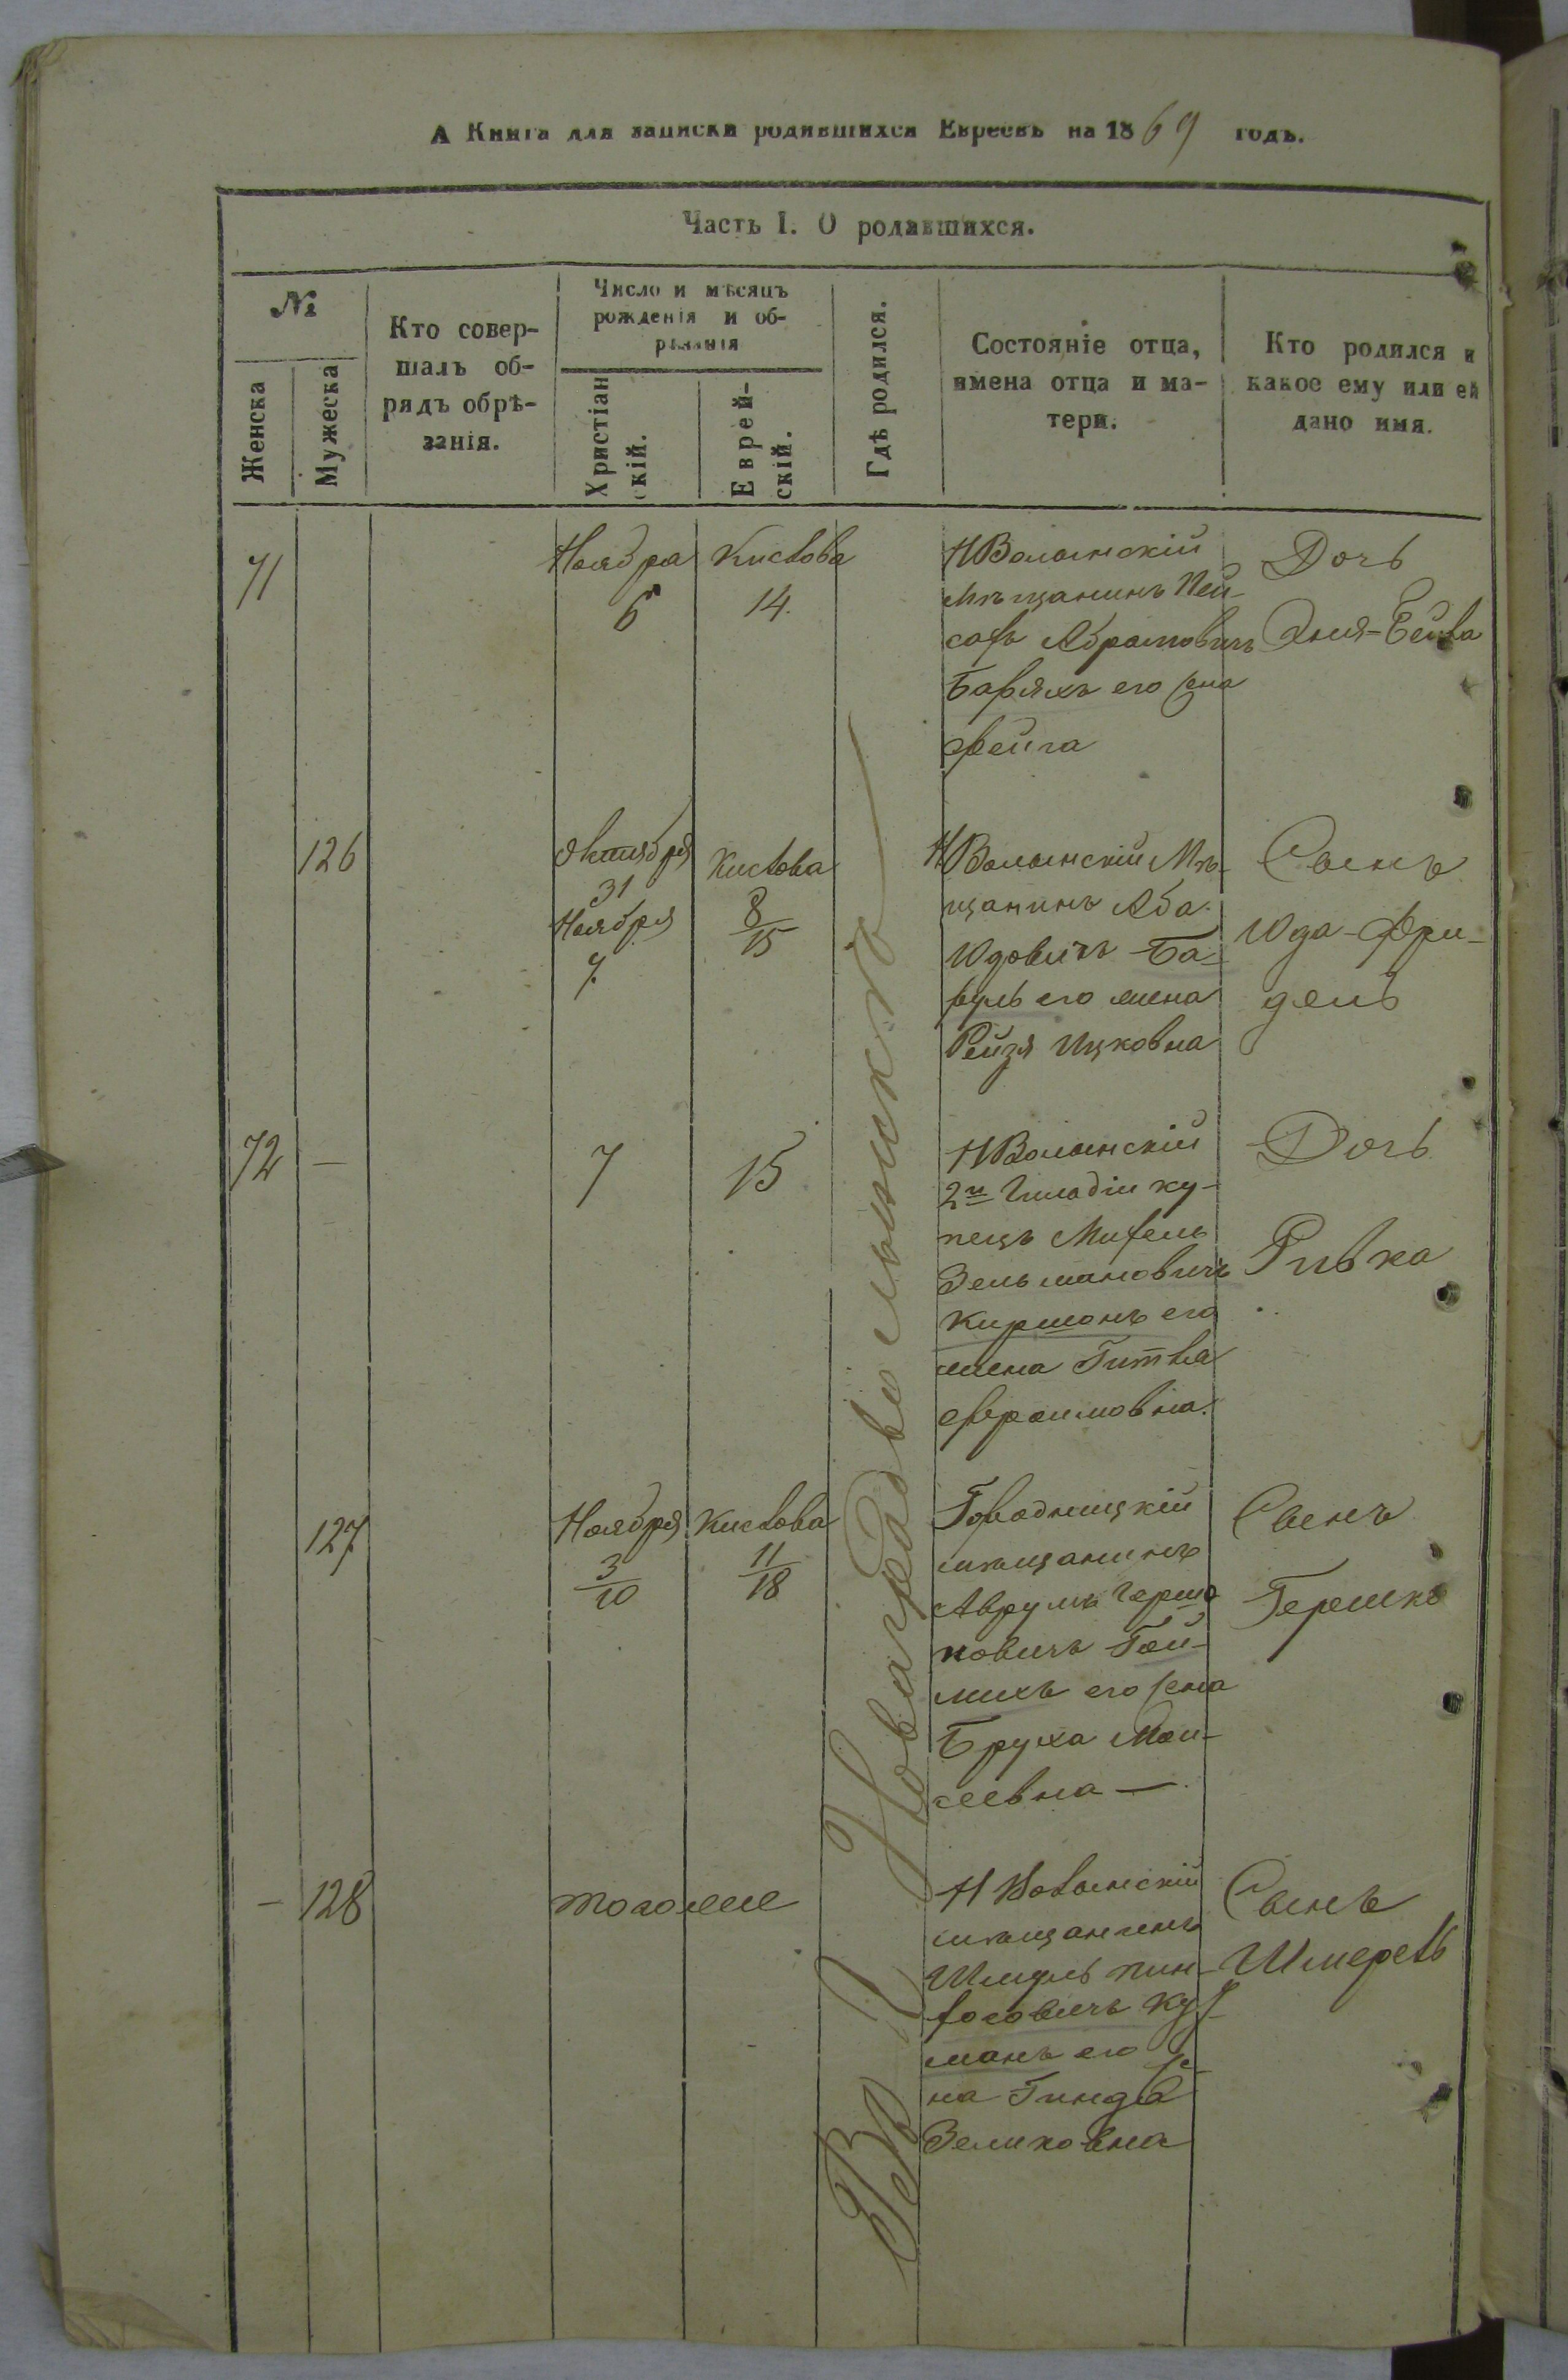 А Книга для записки родившихся Евреевъ на 1869 годъ.
Часть I. О родившихся.
№
Женска
Мужеска
Кто совер-
шалъ об-
рядъ обрѣ-
занія.
Число и мѣсяцъ
рожденія и об-
рѣзанія
Христіан
скій.
Еврей-
скій.
Гдѣ родился.
Состояніе отца,
имена отца и ма-
тери.
Кто родился и
какое ему или ей
дано имя.
Въ Новаградволынскѣ
71
Ноября
6
Кислова
14.
НВолынскій
мѣщанинъ Пей-
сахъ Абрамовичъ
его жена
Фейга
Дочь
Хня-Бейла
126
Октября
31
Ноября
7.
Кислова
8
15
НВолынскій Мѣ-
щанинъ Аба
Юдовичъ Ба-
его жена
Рейзя Ицковна
Сынъ
Юда-Фри-
дель
72 —
7
15
НВолынскій
2й Гильдіи ку-
пецъ Михель
Зельмановичъ
Киршонъ его
жена Гитля
Ефраимовна.
Дочь
Ривка
127
Ноября
3
10
Кислова
11
18
Городницкій
мѣщанинъ
Аврумъ Гершо
новичъ Гой-
михъ его жена
Бруха Мои-
сеевна —
Сынъ
Гершко
— 128
тогоже
Н Волынскій
мѣщанинъ
Шмуль Пин-
хосовичъ
манъ его же-
на Гинда
Зеликовна
Сынъ
Шмерель